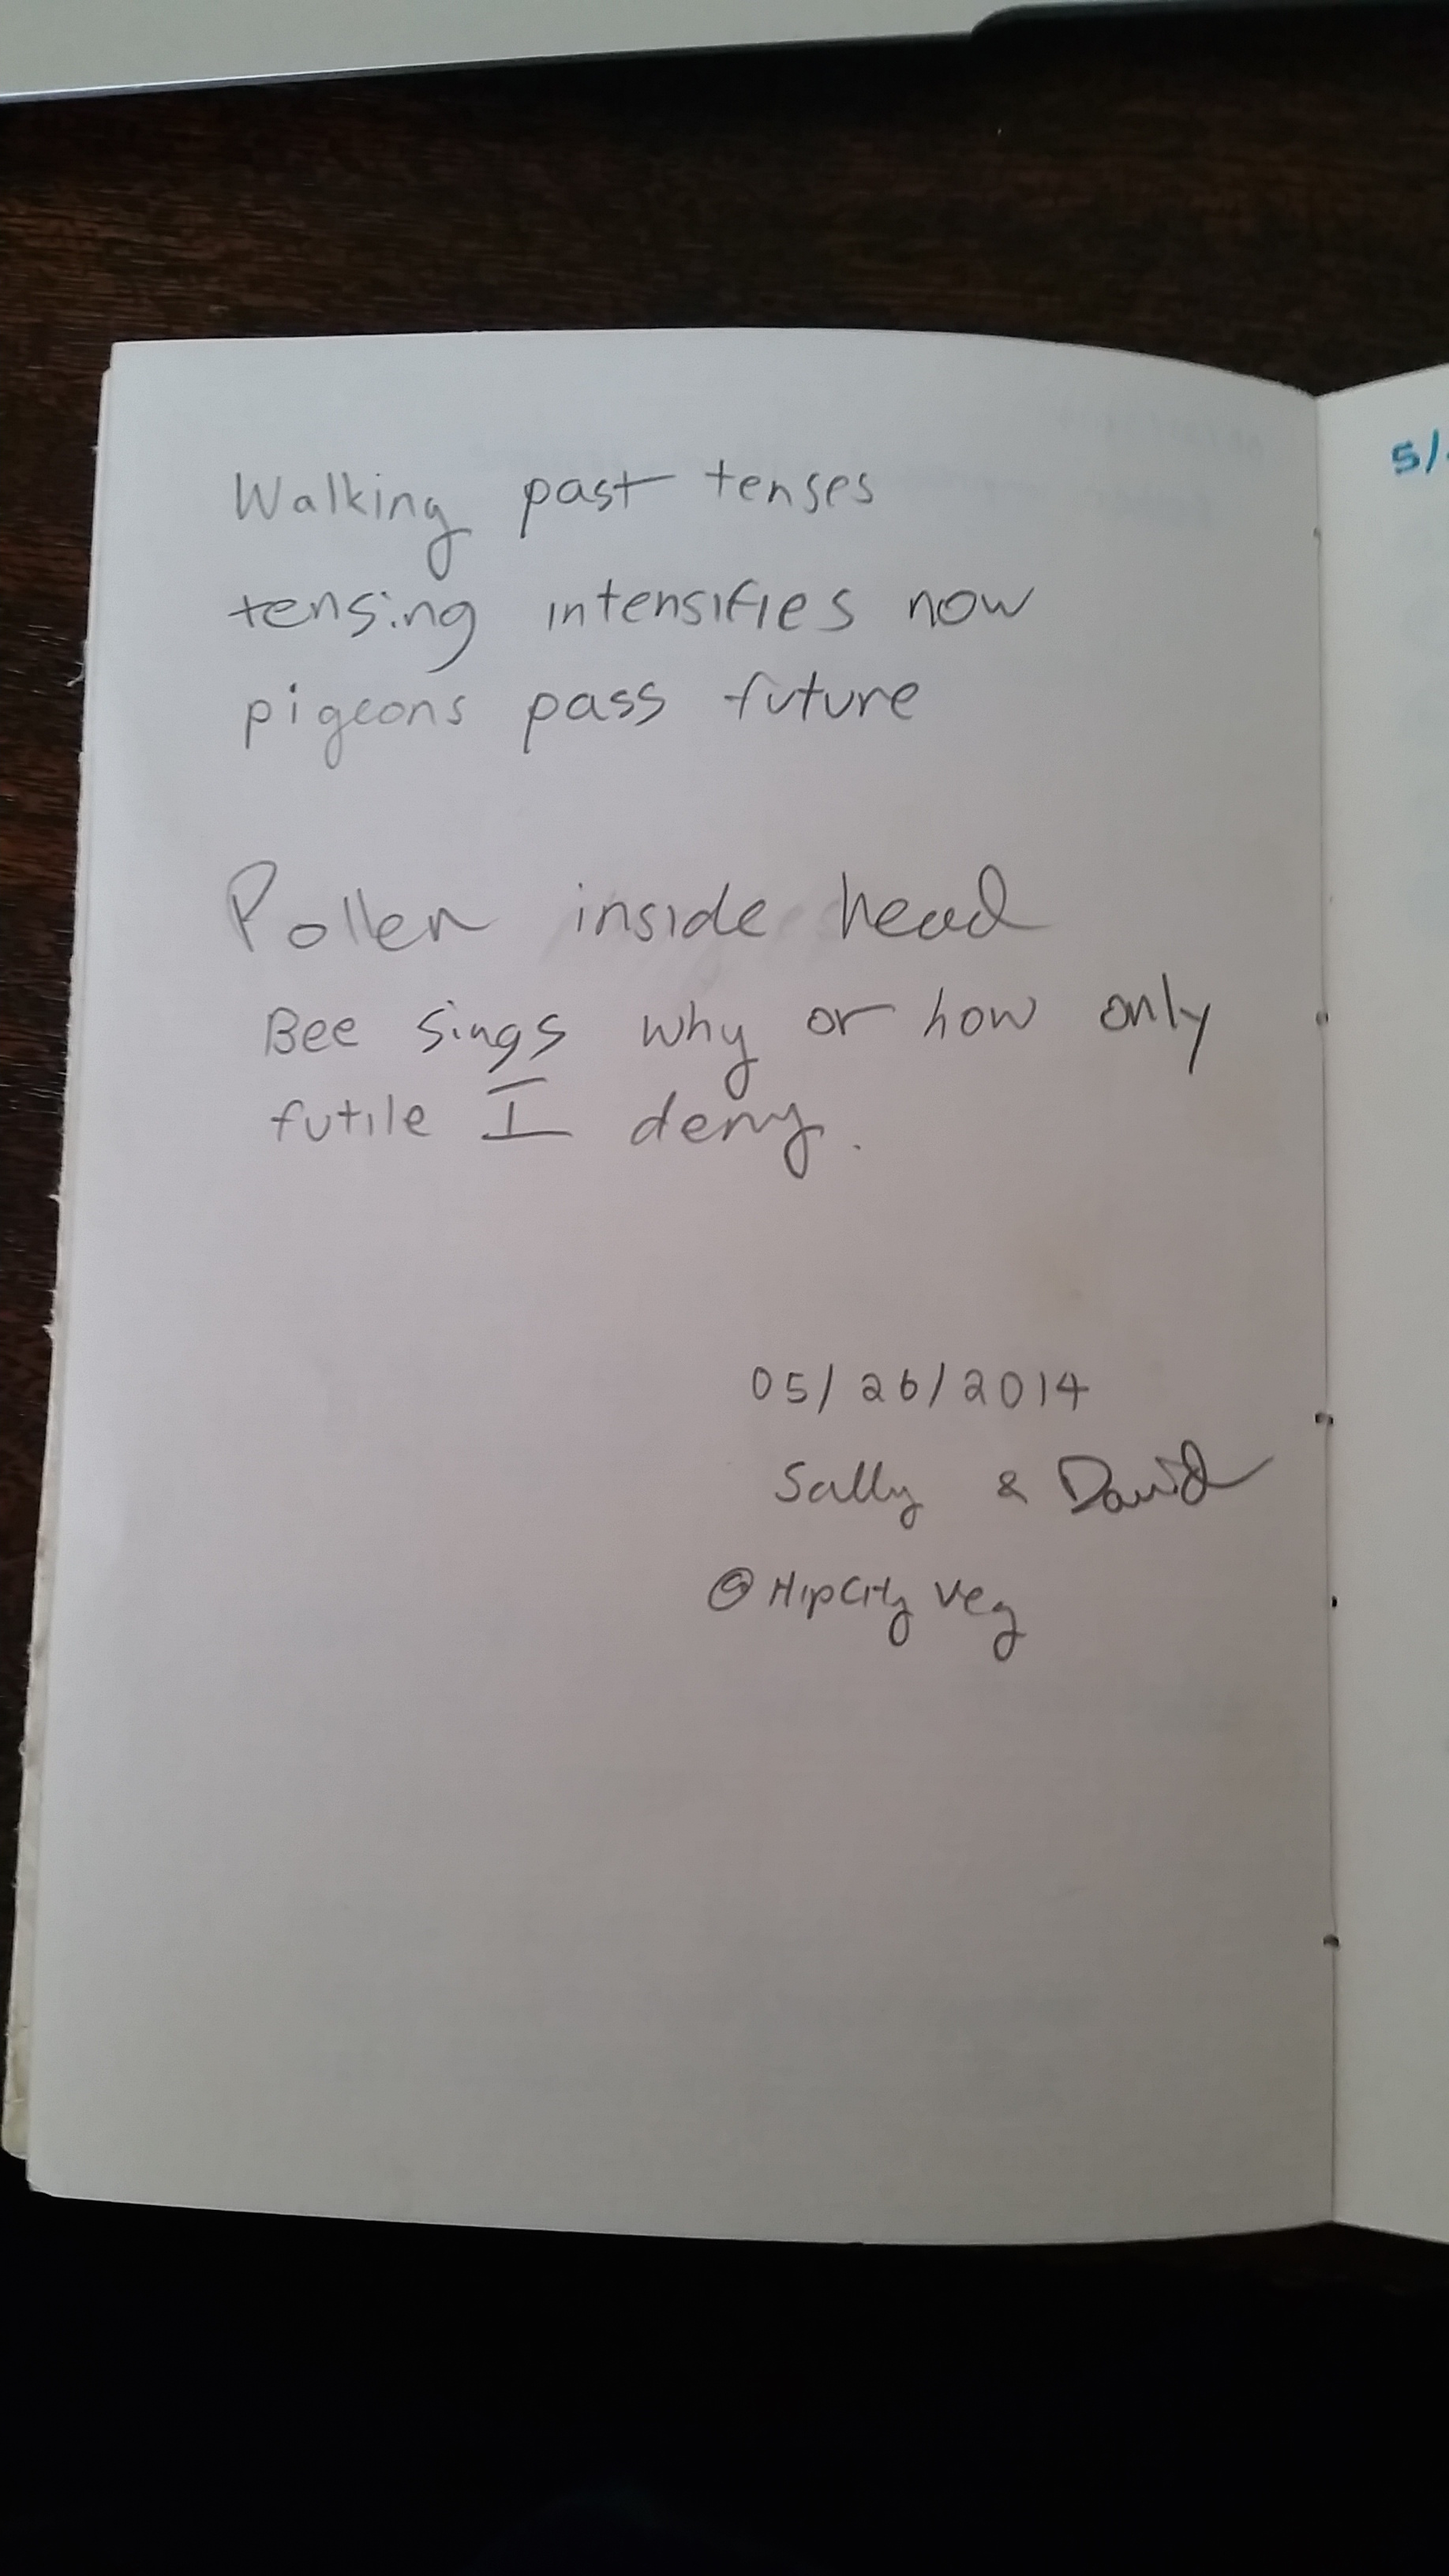 Walking past tenses
tensing intensifies now
pigeons pass future
Pollen inside head
Bee sings why or how only
futile I deny.
05/26/2014
Sally & David
@ HipCity Veg
5/